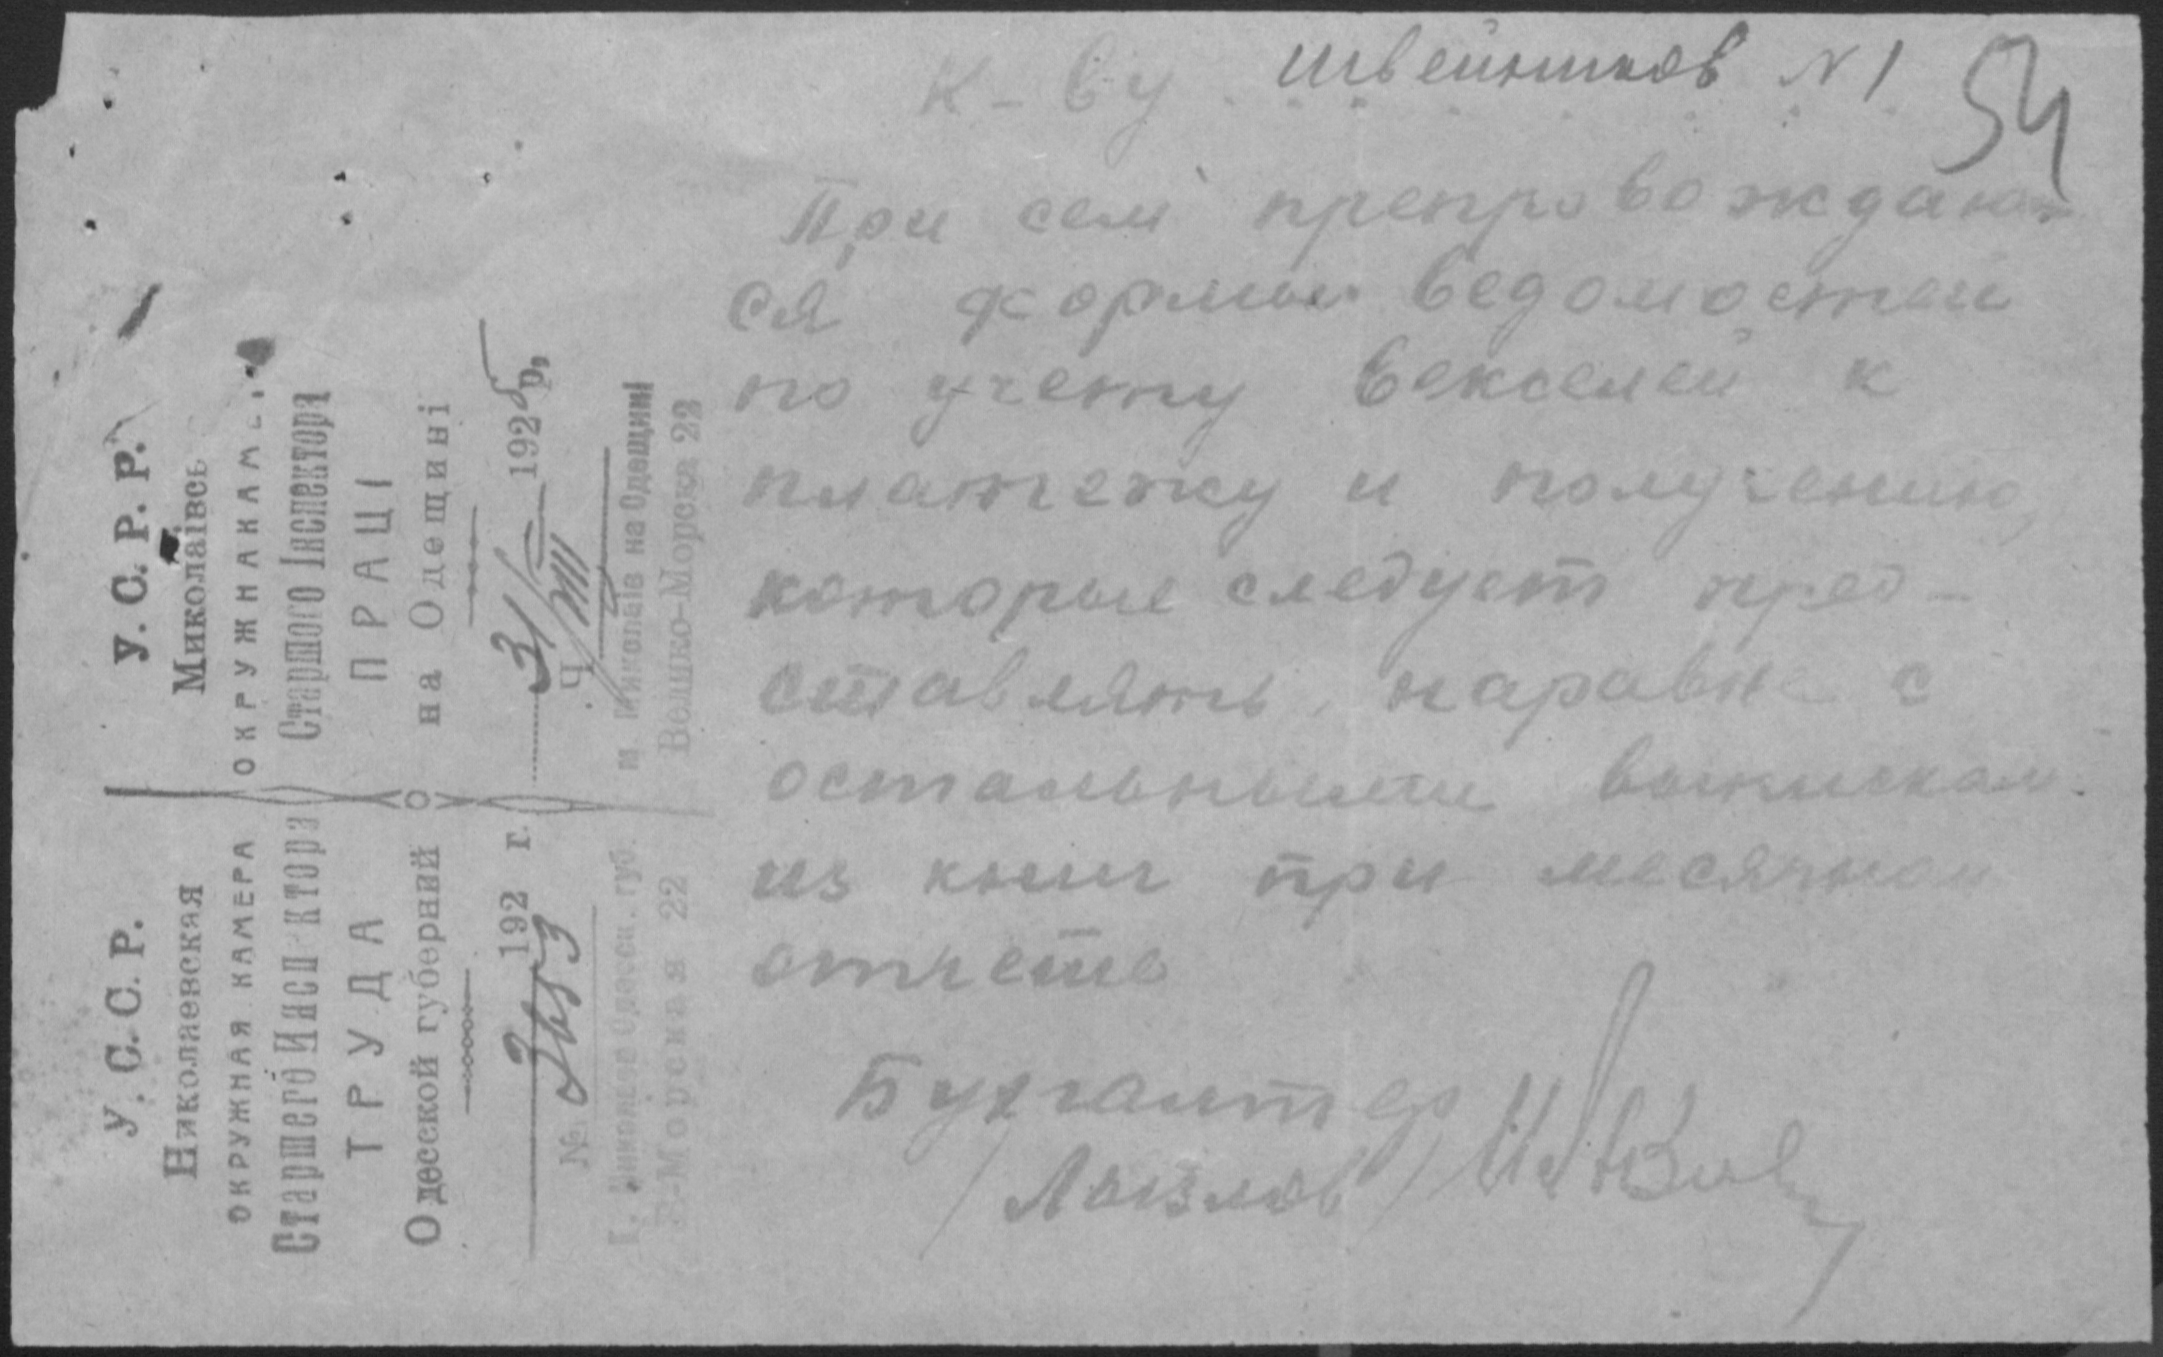 У. С. Р. Р.
Миколаївсь
ОКРУЖНА КАМЕ
Старшого Інспектора
ПРАЦІ
на Одещині
31/VIII 1925 р,
Ч
м. Миколаїв на Одещині
Велико-Морська 22
У. С. С. Р.
Николаевская
ОКРУЖНАЯ КАМЕРА
Старшего Инсп ктора
ТРУДА
Одесской губерний
192 г.
№
г. Николаев Одесск. губ.
-Морская 22
К-ву Швейников N 1
54
При сем препровождают
ся формы ведомостей
по учету векселей к
платежу и получению,
которые следует пред-
ставлять наравне с
остальными выписками
из книг при месячном
отчете
Бухгалтер